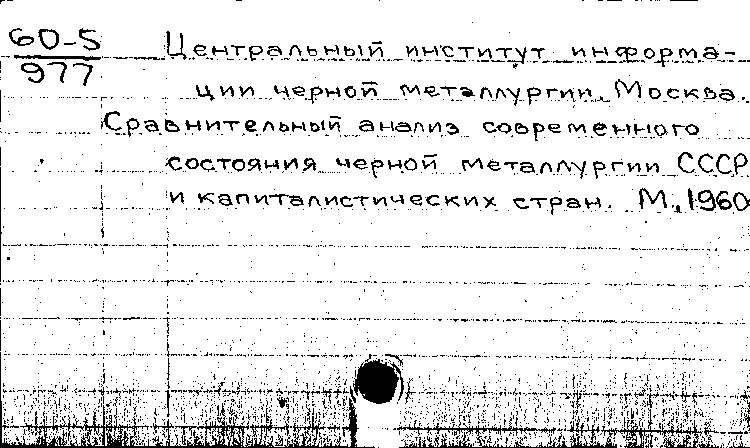 60-5
977
Центральный институт информа-
ции черной металлургии. Москва.
Сравнительный анализ современного
состояния черной металлургии СССР
и капиталистических стран. М., 1960